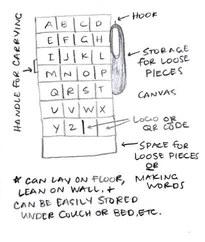 HANDLE FOR CARRYING
A B C D
E F G H
I J K L
M N O P
Q R S T
U V W X
Y Z
HOOK
STORAGE
FOR LOOSE
PIECES
CANVAS
LOGO OR
QR CODE
SPACE FOR
LOOSE PIECES
OR
MAKING
WORDS
* CAN LAY ON FLOOR,
LEAN ON WALL, +
CAN BE EASILY STORED
UNDER COUCH OR BED, ETC.